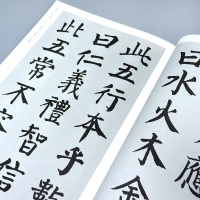 應
曰水火木金
此五行本乎數
曰仁義禮智信
此五常不容